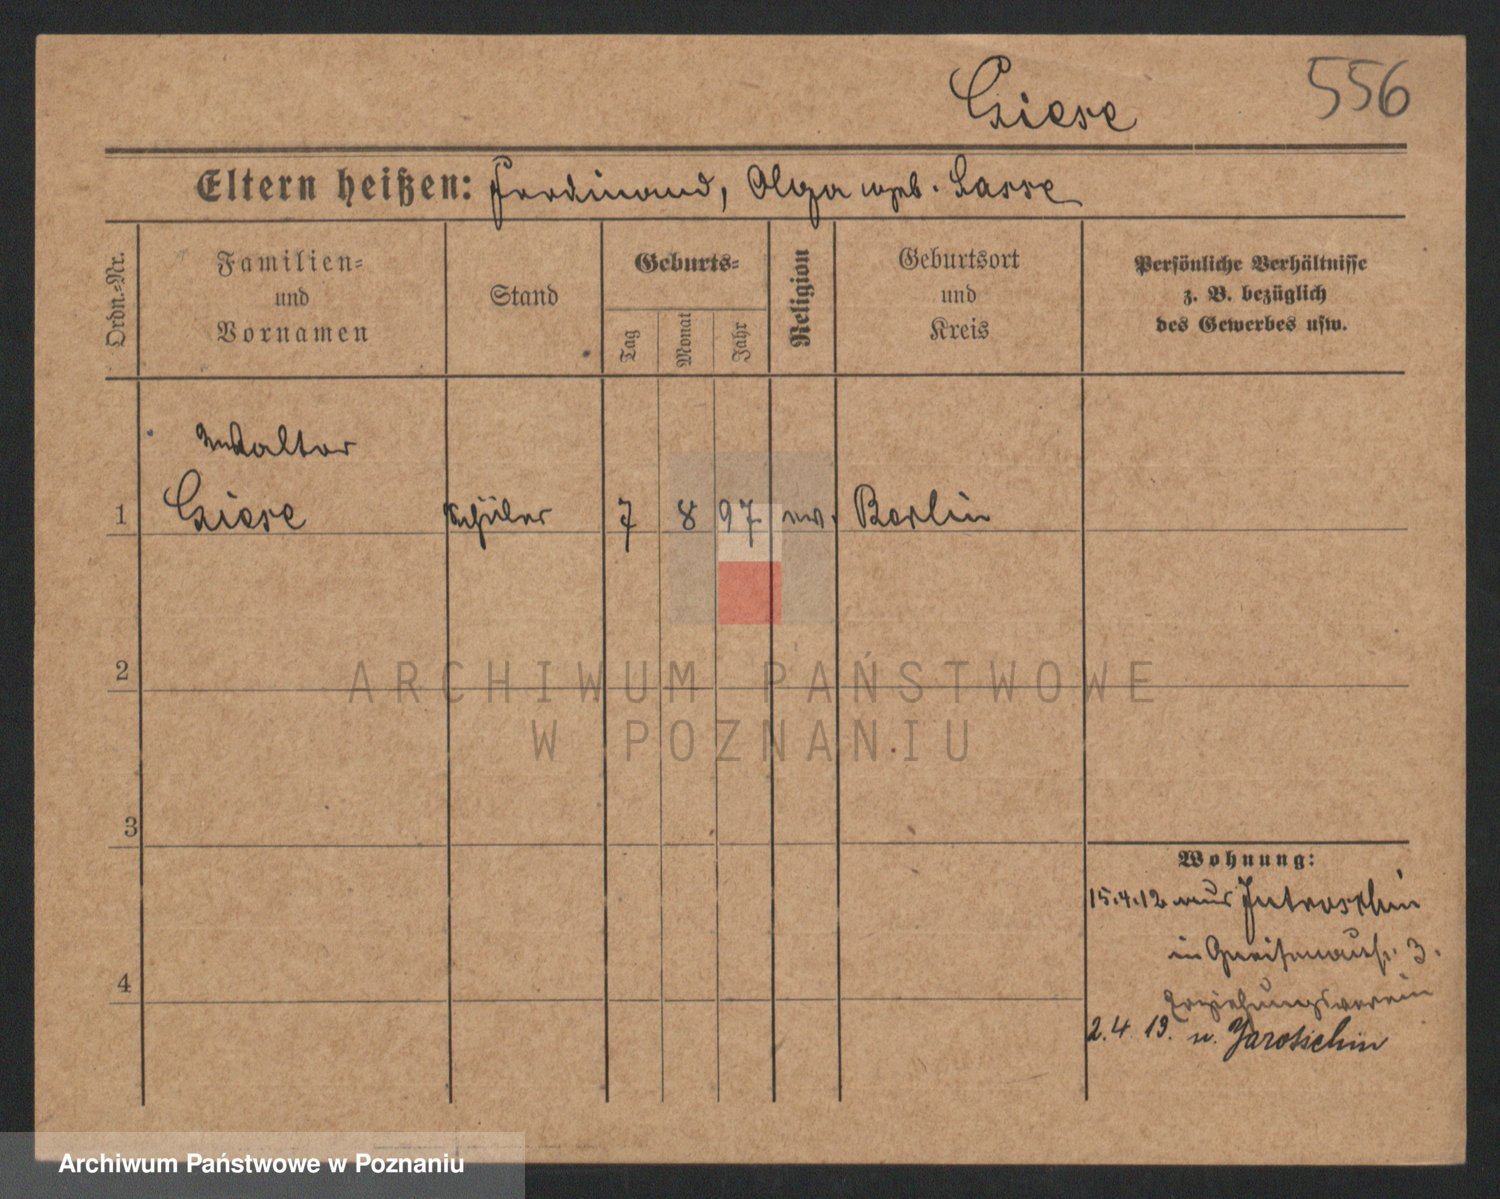 Giese 556
Eltern heißen: Ferdinand, Olga geb. Sasse
Ordn.-Nr.
Familien-
und
Vornamen
Stand
Geburts-
Tag
Monat
Jahr
Religion
Geburtsort
und
Kreis
Persönliche Verhältnisse
z. B. bezüglich
des Gewerbes usw.
Walter
1 Giese Schüler 7 8 97 ev. Berlin
2
3
4
Wohnung:
15.4.12 aus Jutroschin
in Gneisenaustr. 3.
Erziehungsverein
2.4 13. n. Jarotschin
ARCHIWUM PAŃSTWOWE
W POZNANIU
Archiwum Państwowe w Poznaniu